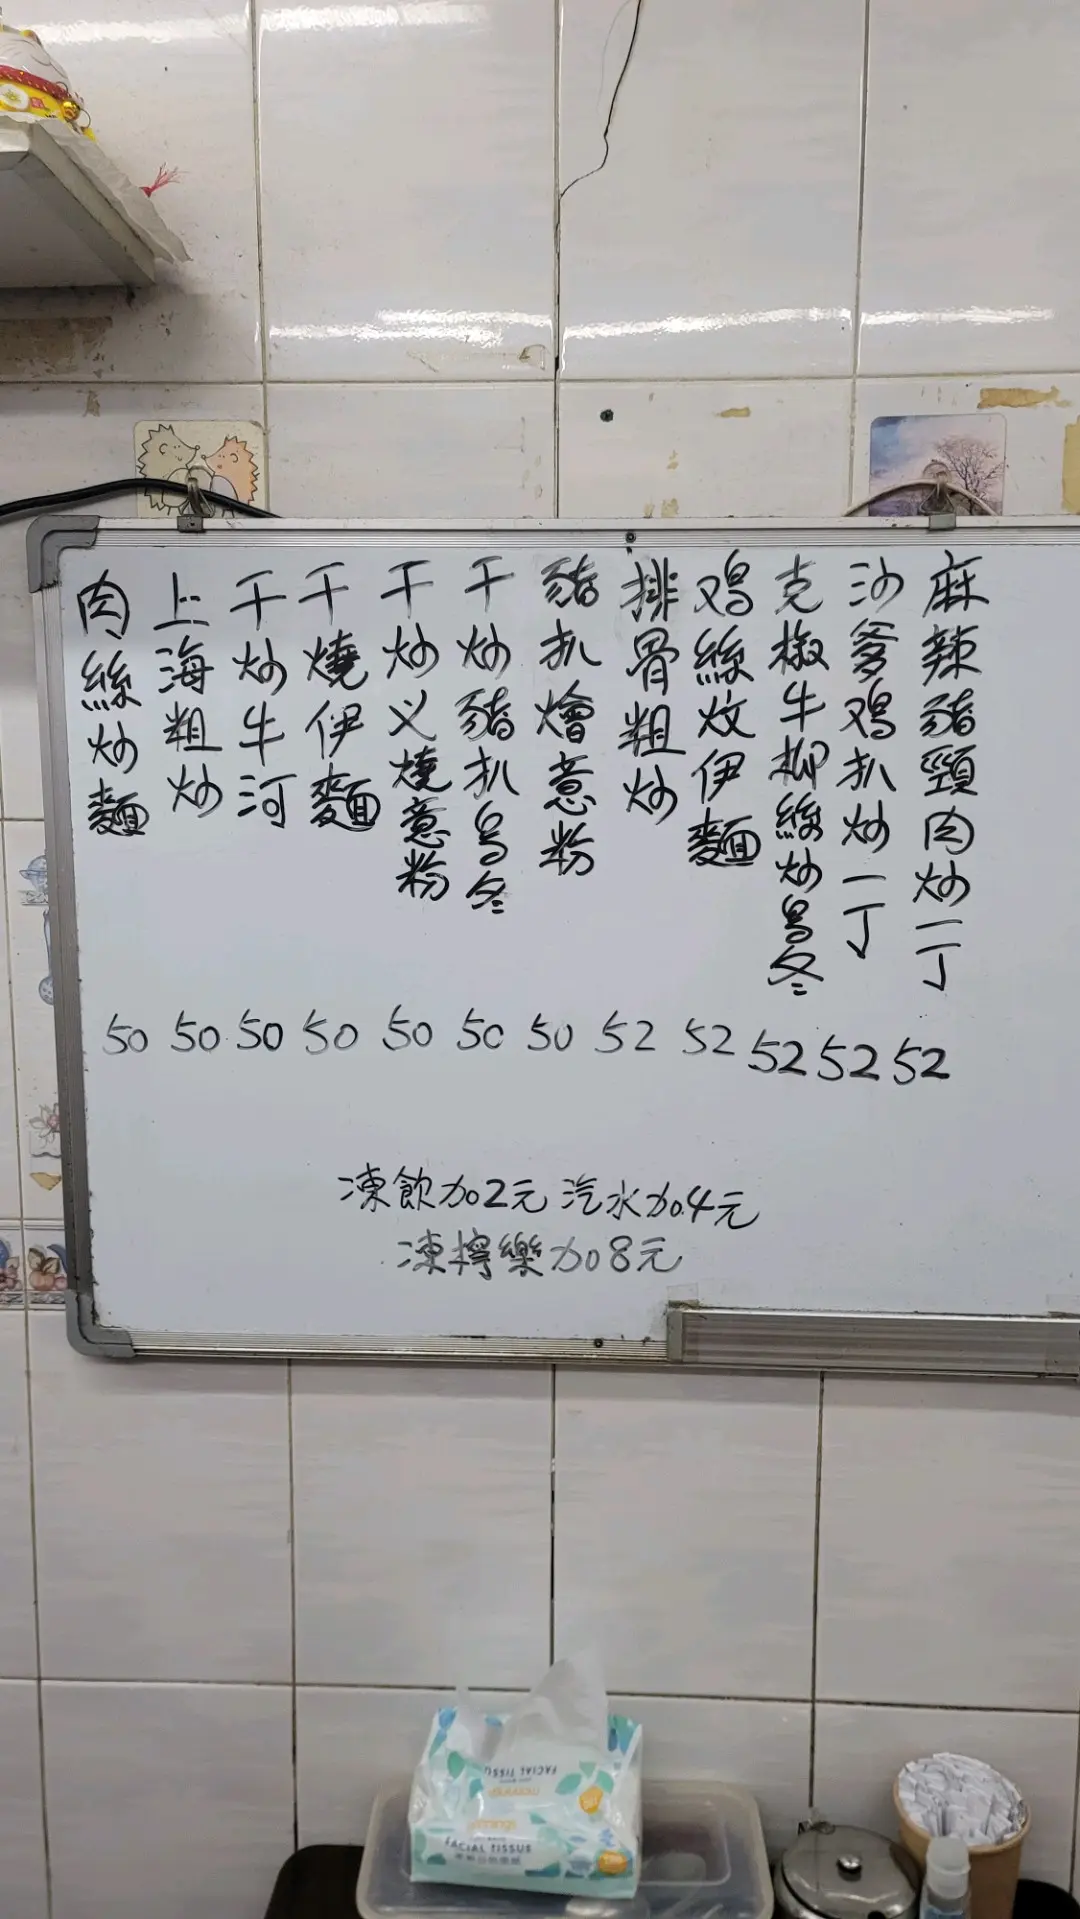 麻辣豬頸肉炒一丁
沙爹鸡扒炒一丁
克椒牛柳絲炒烏冬
鸡絲炆伊麵
排骨粗炒
豬扒燴意粉
干炒豬扒烏冬
干炒义燒意粉
干燒伊麵
干炒牛河
上海粗炒
肉絲炒麵
50 50 50 50 50 50 50 52 52 52 52 52
凍飲加2元 汽水加4元
凍檸樂加8元
FACIAL TISSUE
FACIAL TISSUE